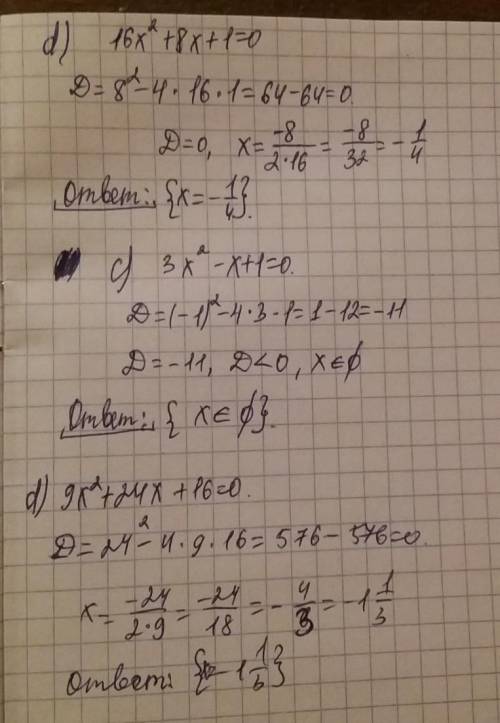 d) 16x²+8x+1=0
D=8²-4·16·1=64-64=0.
D=0, x=\frac{-8}{2·16}=\frac{-8}{32}=-\frac{1}{4}
Ответ: {x=-\frac{1}{4}}.
c) 3x²-x+1=0.
D=(-1)²-4·3-1=1-12=-11
D=-11, D<0, x∈∅
Ответ: { x∈∅}.
d) 9x²+24x+16=0.
D=24²-4·9·16=576-576=0.
x=\frac{-24}{2·9}=\frac{-24}{18}=-\frac{4}{3}=-1\frac{1}{3}
Ответ: {-1\frac{1}{3}}